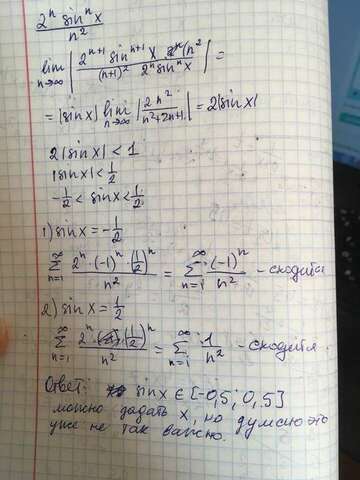 2ⁿ sinⁿ x / n²
lim n→∞ | 2ⁿ⁺¹ sinⁿ⁺¹ x (n² / (n+1)² 2ⁿ sinⁿ x | =
= |sin x| lim n→∞ | 2n² / n²+2n+1 | = 2|sin x|
2|sin x| < 1
|sin x| < 1/2
-1/2 < sin x < 1/2
1) sin x = -1/2
∞ Σ n=1 2ⁿ · (-1)ⁿ · (1/2)ⁿ / n² = ∞ Σ n=1 (-1)ⁿ / n² - сходится
2) sin x = 1/2
∞ Σ n=1 2ⁿ · (1/2)ⁿ / n² = ∞ Σ n=1 1 / n² - сходится.
Ответ: sin x ∈ [-0,5; 0,5]
можно задать x, но думаю это
уже не так важно.